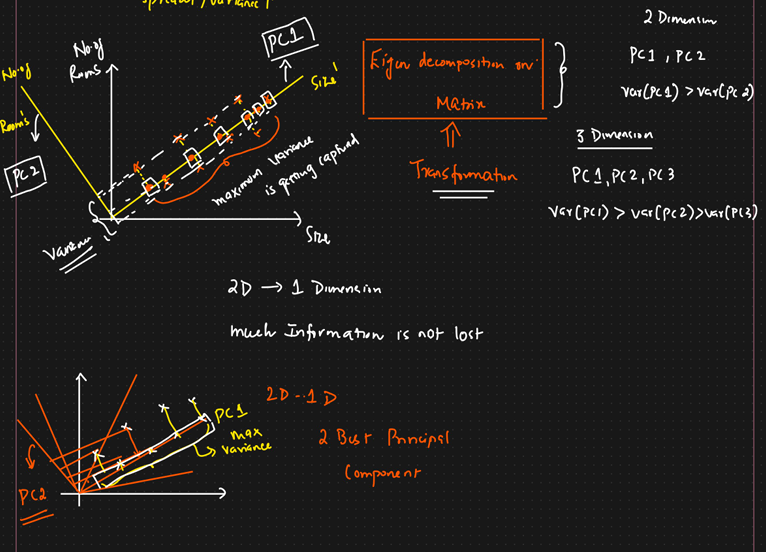 spread/variance↑
No. of
Rooms
No. of
Room's
PC1
Size'
PC2
maximum variance
is getting captured
Size
Eigen decomposition on
Matrix
⇑
Transformation
2 Dimension
PC1, PC2
var(PC1) > var(PC2)
3 Dimension
PC1, PC2, PC3
var(PC1) > var(PC2) > var(PC3)
2D → 1 Dimension
much Information is not lost
PC1
max
variance
PC2
2D - 1D
2 Best Principal
Component